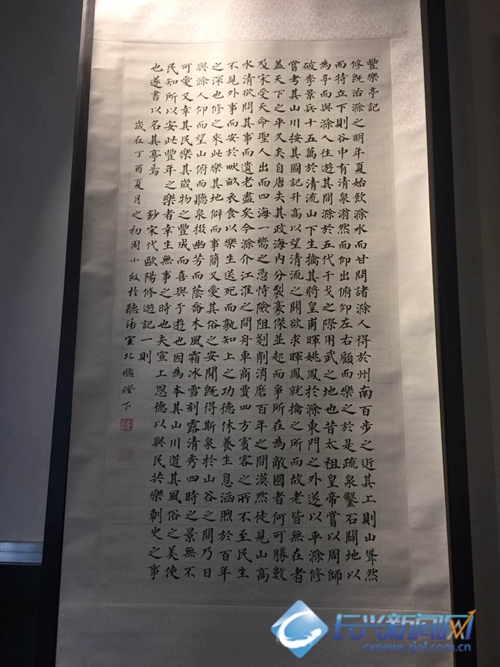 豐樂亭記
修既治滁之明年夏始飲滁水而甘問諸滁人得於州南百步之近其上則山聳然
而特立下則谷中有清泉滃然而仰出俯仰左右顧而樂之於是疏泉鑿石闢地以
為亭而與滁人往遊其間滁於五代干戈之際用武之地也昔太祖皇帝嘗以周師
破李景兵十五萬於清流山下生擒其將皇甫暉姚鳳於滁東門之外遂以平滁修
嘗考其山川按其圖記升高以望清流之關欲求暉鳳就擒之所而故老皆無在者
蓋天下之平久矣自唐失其政海內分裂豪傑並起而爭所在為敵國者何可勝數
及宋受天命聖人出而四海一嚮之憑恃險阻剗削消磨百年之間漠然徒見山高
水清欲問其事而遺老盡矣今滁介江淮之間舟車商賈四方賓客之所不至民生
不見外事而安於畎畝衣食以樂生送死而孰知上之功德休養生息涵煦於百年
之深也修之來此樂其地僻而事簡又愛其俗之安閒既得斯泉於山谷之間乃日
與滁人仰而望山俯而聽泉掇幽芳而蔭喬木風霜冰雪刻露清秀四時之景無不
可愛又幸其民樂其歲物之豐成而喜與予遊也因為本其山川道其風俗之美使
民知所以安此豐年之樂者幸生無事之時也夫宣上恩德以與民共樂刺史之事
也遂書以名其亭焉 鈔宋代歐陽修遊記一則
歲在丁酉夏月之初周小於聽室北牖燈下
长兴新闻网
cxnews.zjol.com.cn